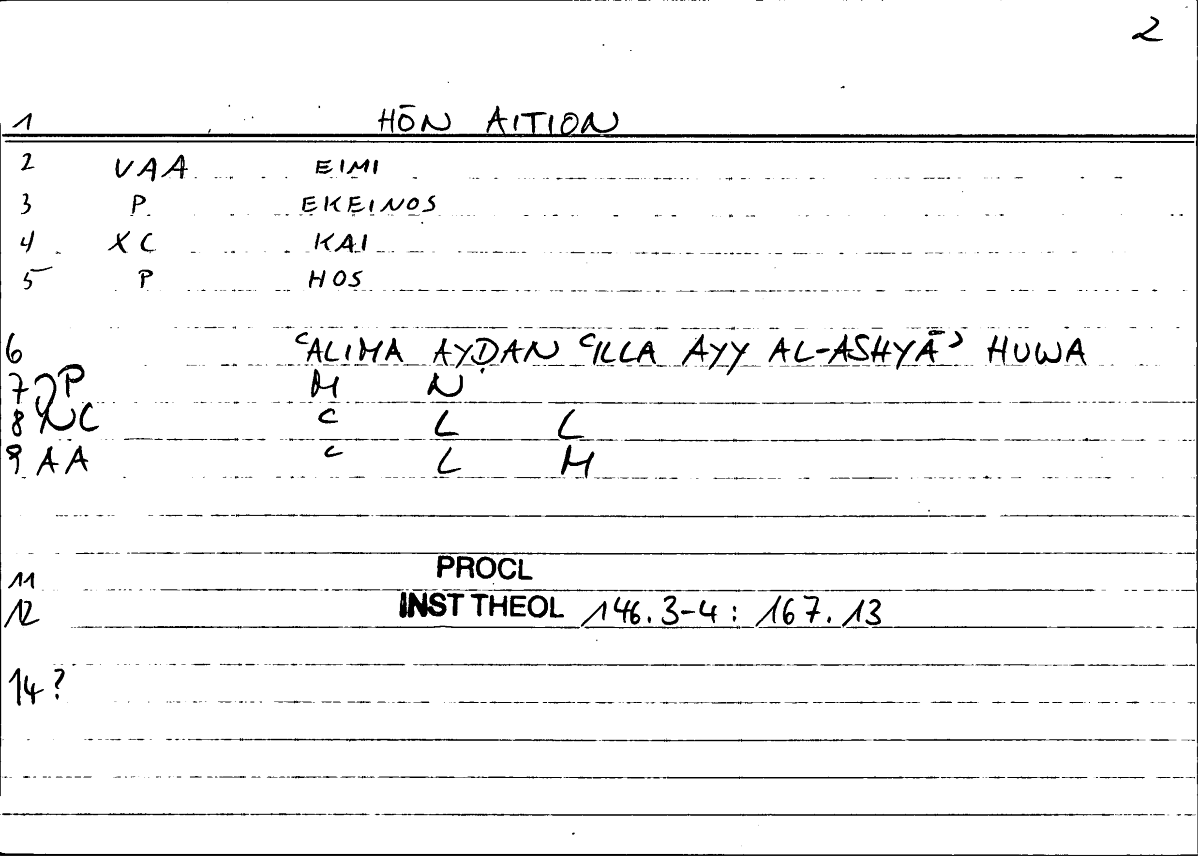 2
1 HŌN AITION
2 VAA EIMI
3 P EKEINOS
4 XC KAI
5 P HOS
6 ʿALIMA AYḌAN ʿILLA AYY AL-ASHYĀʾ HUWA
7 JP M N
8 NC ʿ L L
9 AA ʿ L M
11 PROCL
12 INST THEOL 146.3-4: 167.13
14?